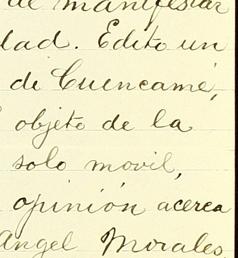 de manifestar
dad. Edito un
de Cuencamé,
objeto de la
solo movil,
opinión acerca
Angel Morales